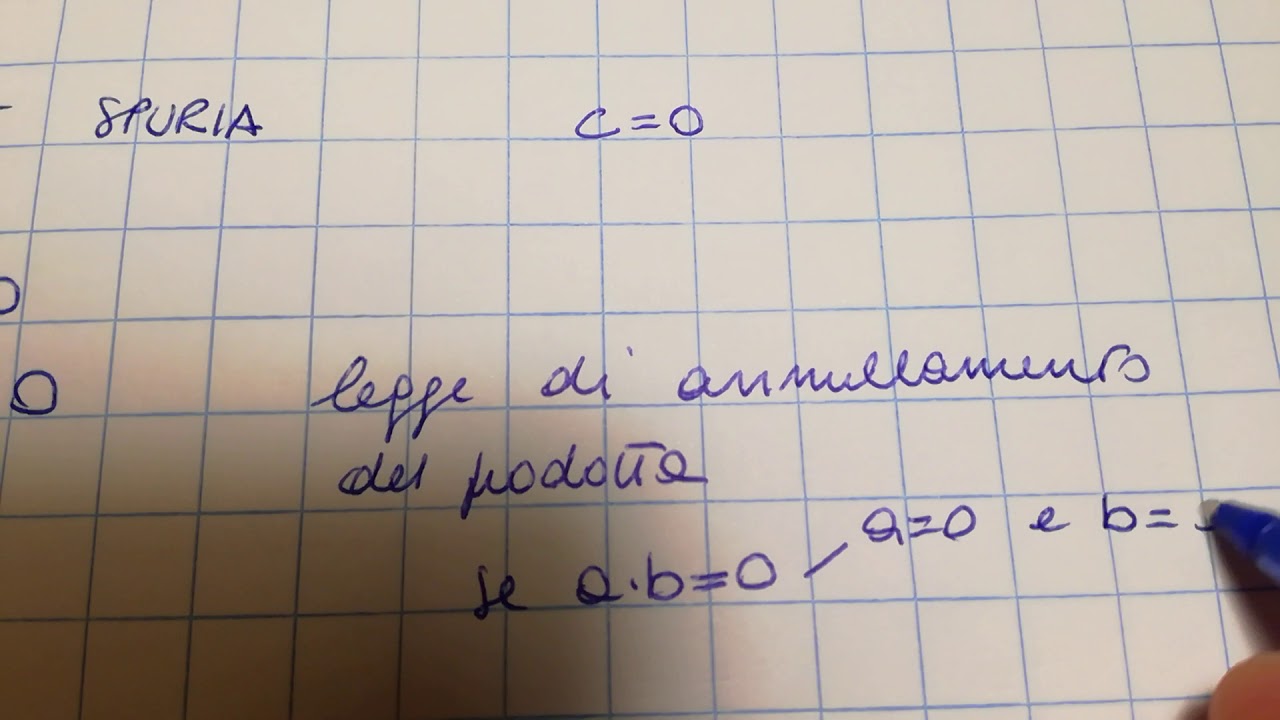 SPURIA c=0
0
0 legge di annullamento
del prodotto
a=0 e b=
se a·b=0